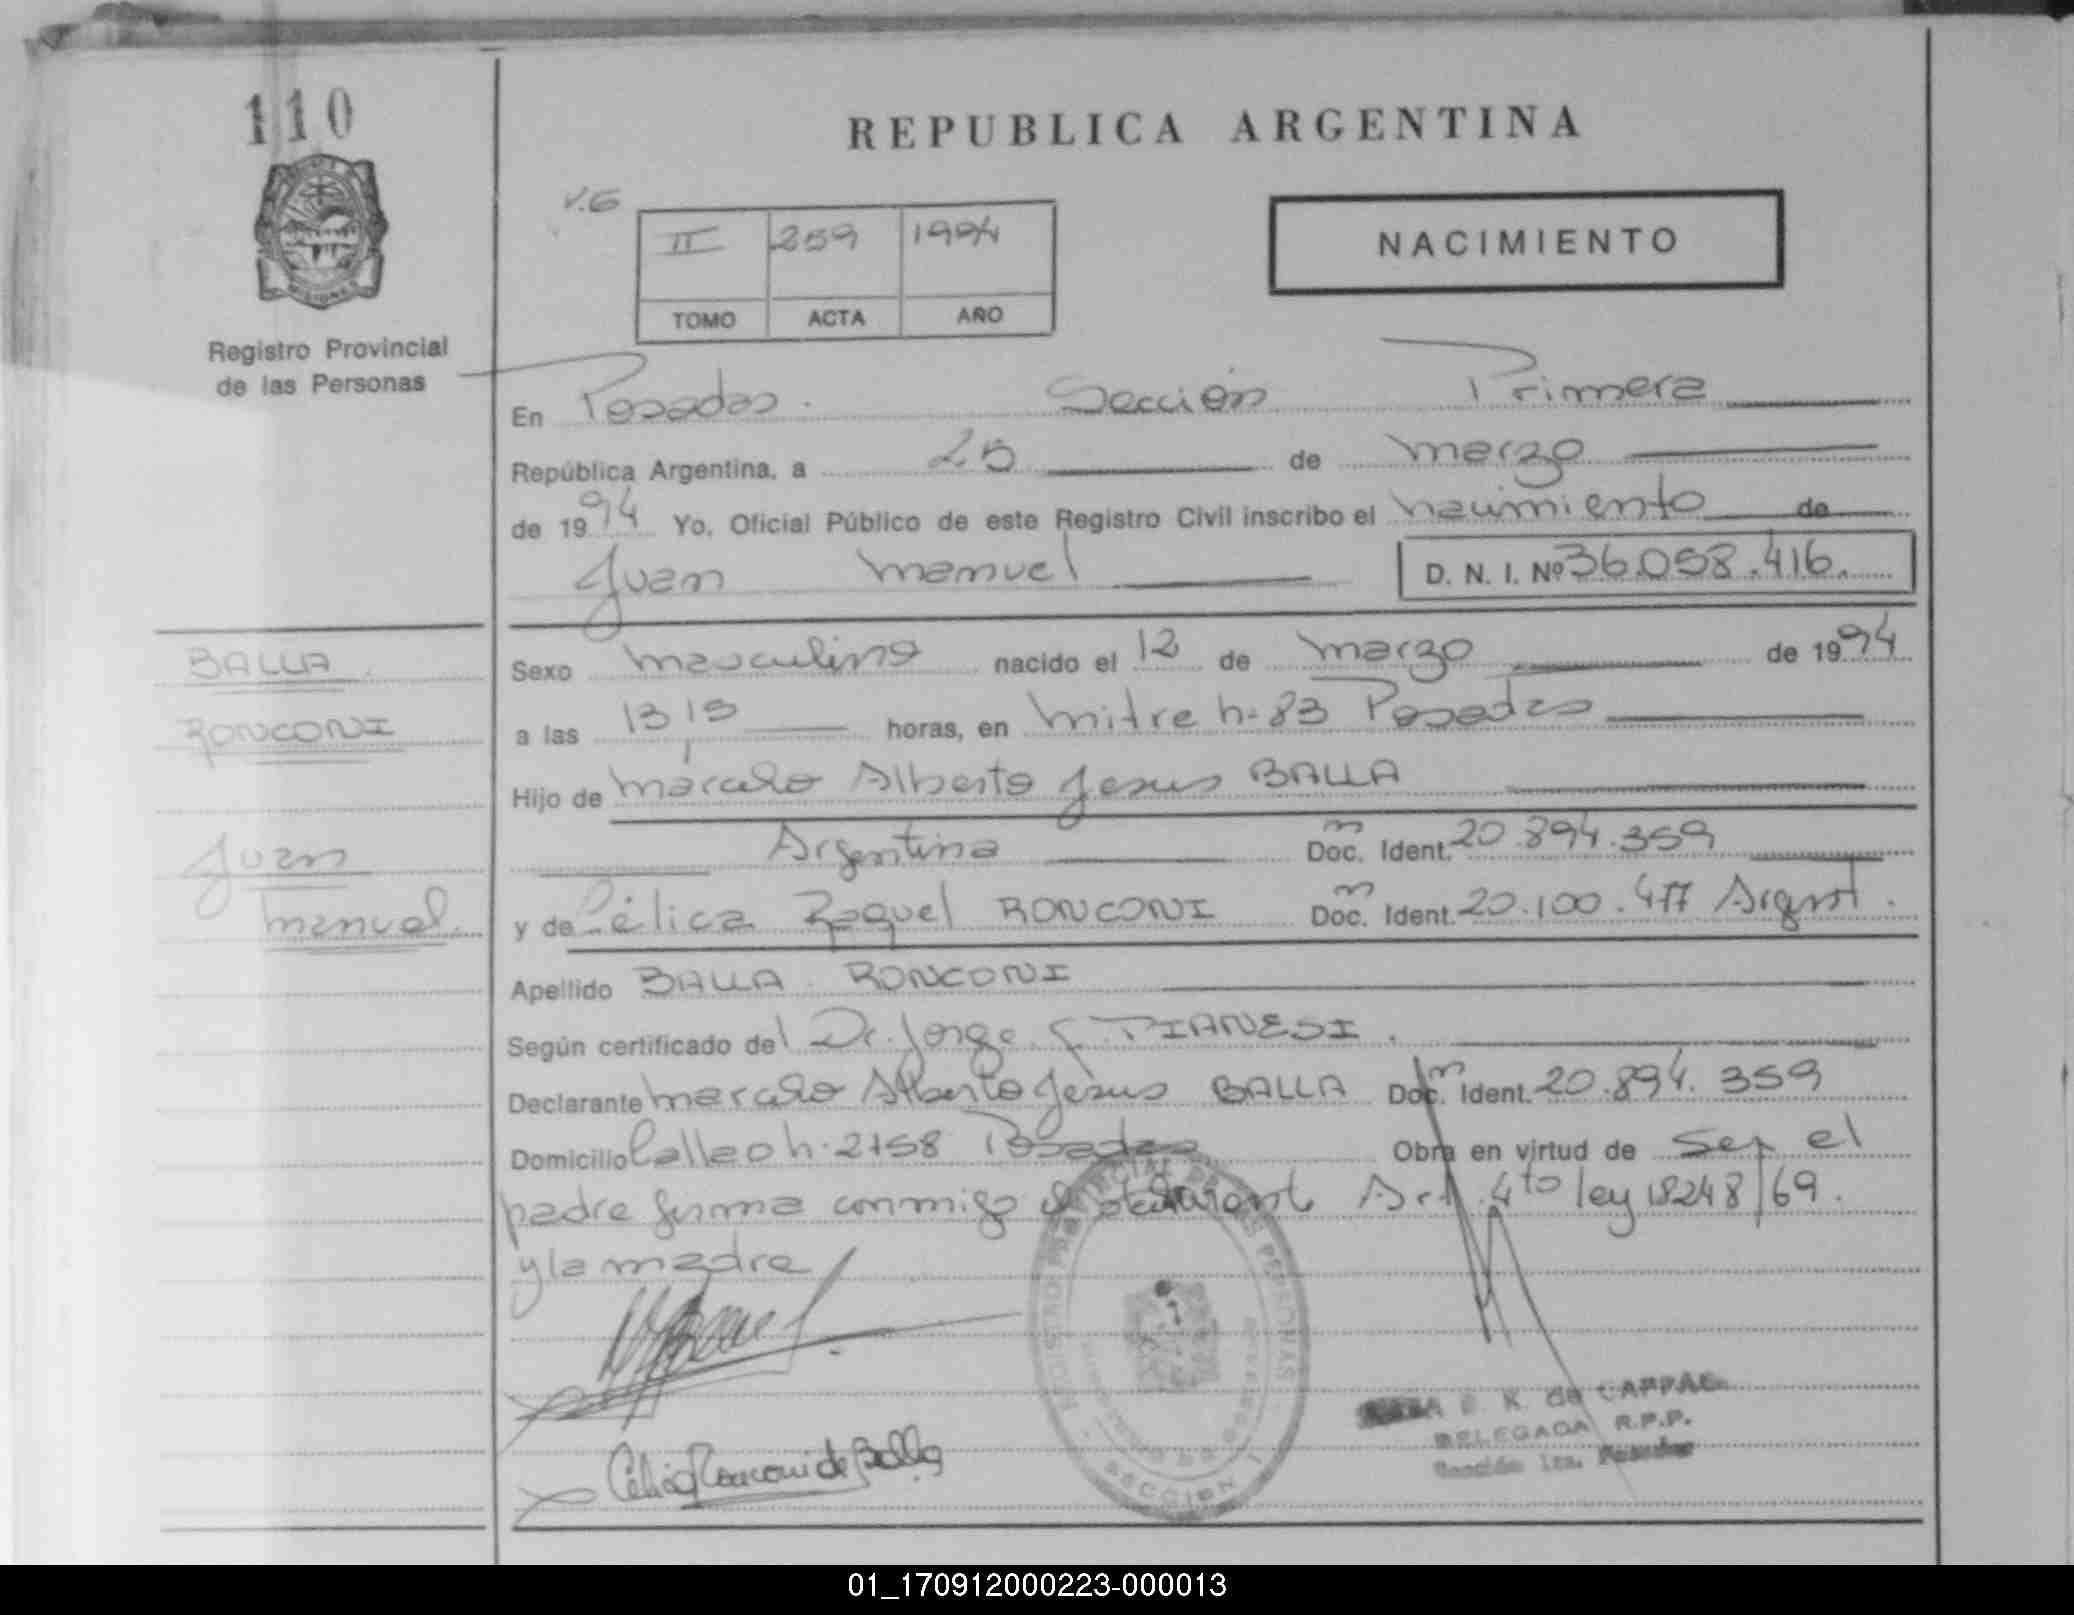 110
REPUBLICA ARGENTINA
MISIONES
Registro Provincial
de las Personas
V.G
II 259 1994
TOMO ACTA AÑO
NACIMIENTO
En Posadas. Sección Primera
República Argentina, a 25 de marzo
de 1994 Yo, Oficial Público de este Registro Civil inscribo el nacimiento de
Juan Manuel D. N. I. Nº 36.058.416.
BALLA
RONCONI
Juan
Manuel
Sexo masculino nacido el 12 de marzo de 1994
a las 13,15 horas, en Mitre n- 83 Posadas
Hijo de Marcelo Alberto Jesus BALLA
Argentina Doc. Ident. 20.894.359
y de Célica Raquel RONCONI Doc. Ident. 20.100.477 Argent.
Apellido BALLA RONCONI
Según certificado del Dr. Jorge TIANESI.
Declarante Marcelo Alberto Jesus BALLA Doc. Ident. 20.894.359
Domicilio Callao n. 2758 Posadas Obra en virtud de ser el
padre firma conmigo el declarante Art. 4to ley 18248/69.
y la madre
Celica Ronconi de Balla
SECCION 1
K. de CAPPAC
DELEGADA R.P.P.
Sección 1ra. Posadas
01_170912000223-000013